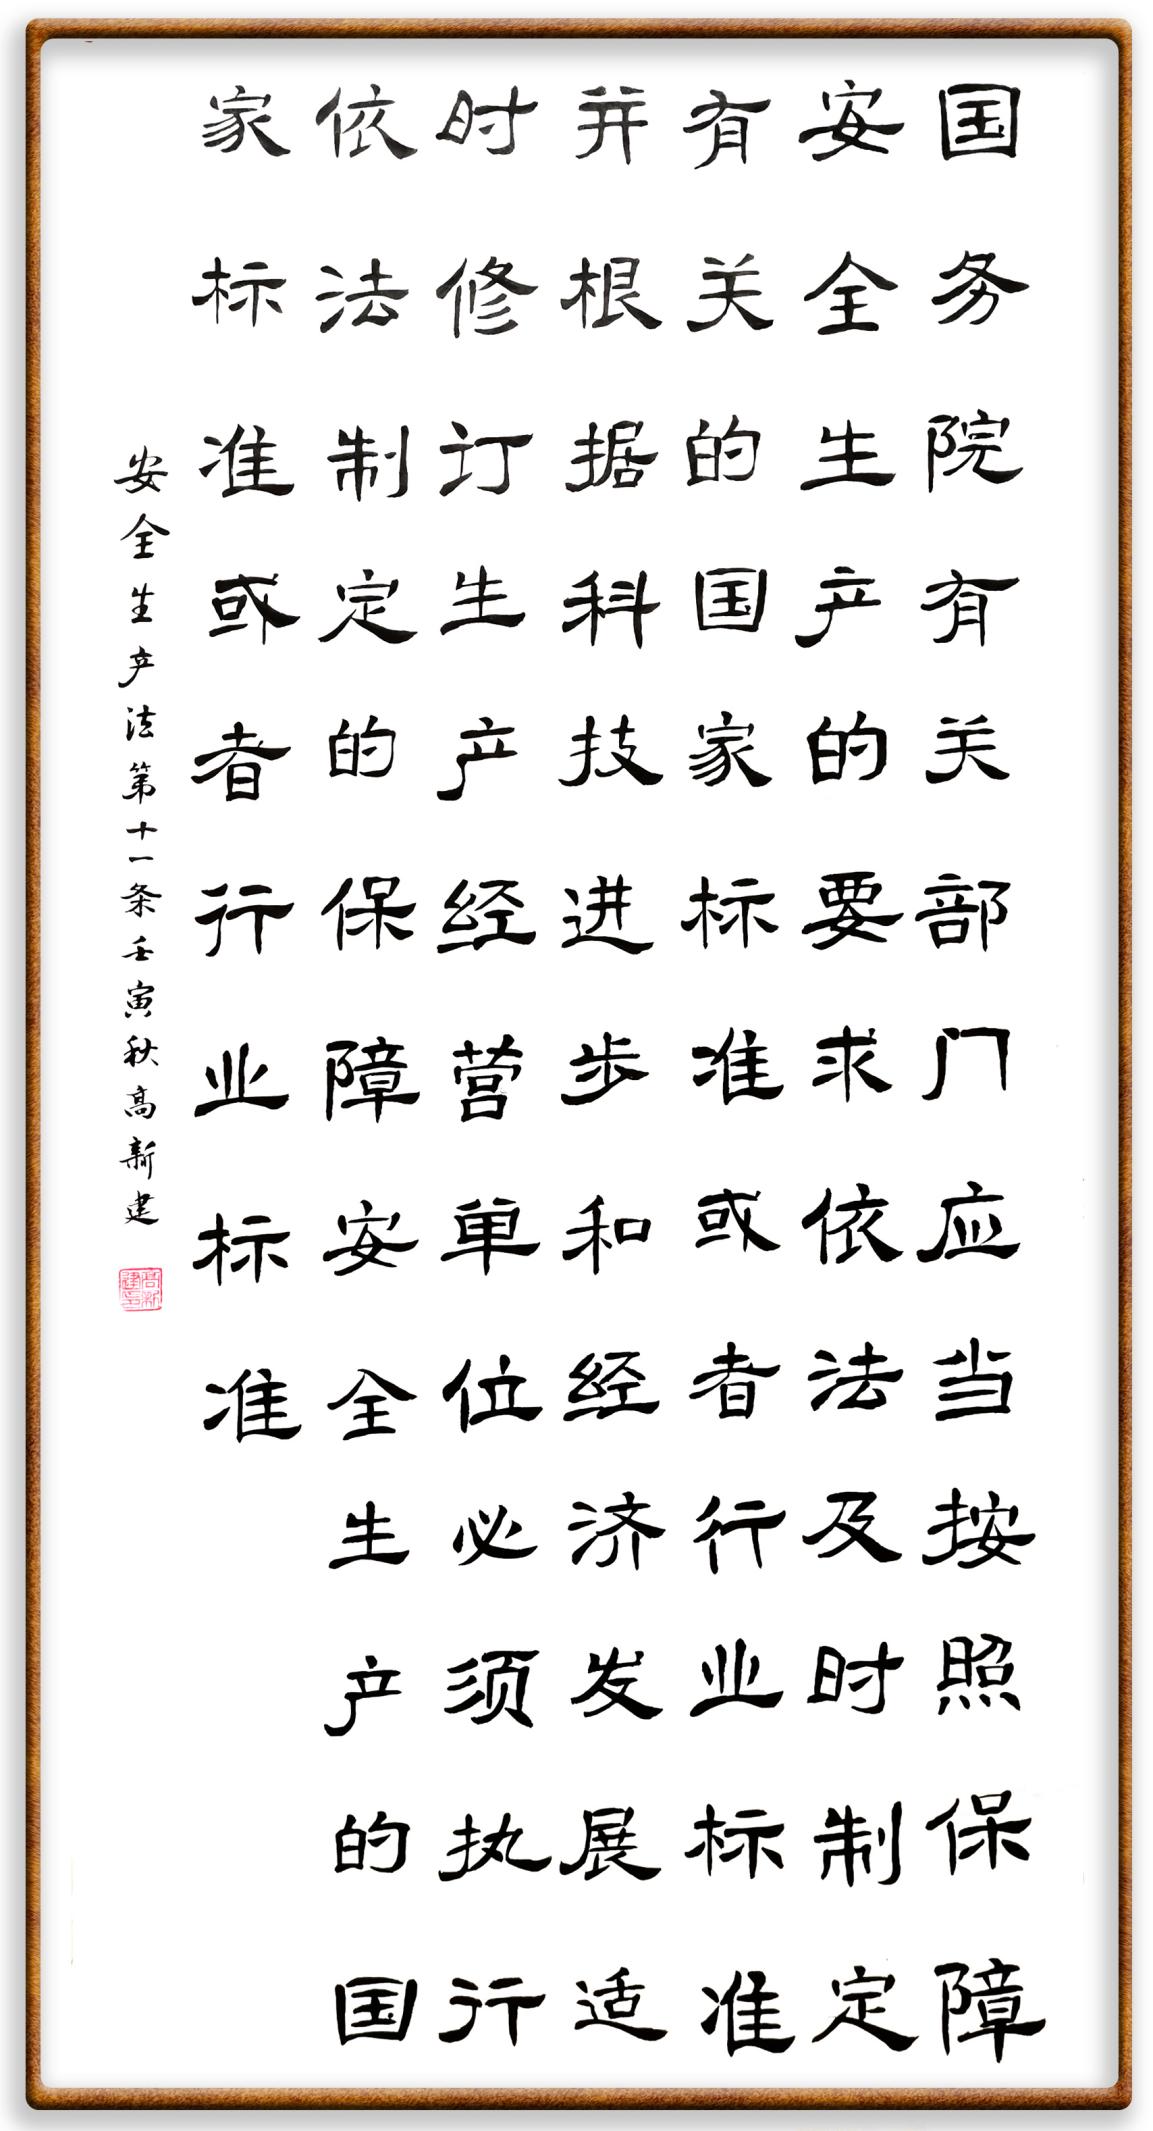 国务院有关部门应当按照保障
安全生产的要求依法及时制定
有关的国家标准或者行业标准
并根据科技进步和经济发展适
时修订生产经营单位必须执行
依法制定的保障安全生产的国
家标准或者行业标准
安全生产法第十一条壬寅秋高新建
高新建印